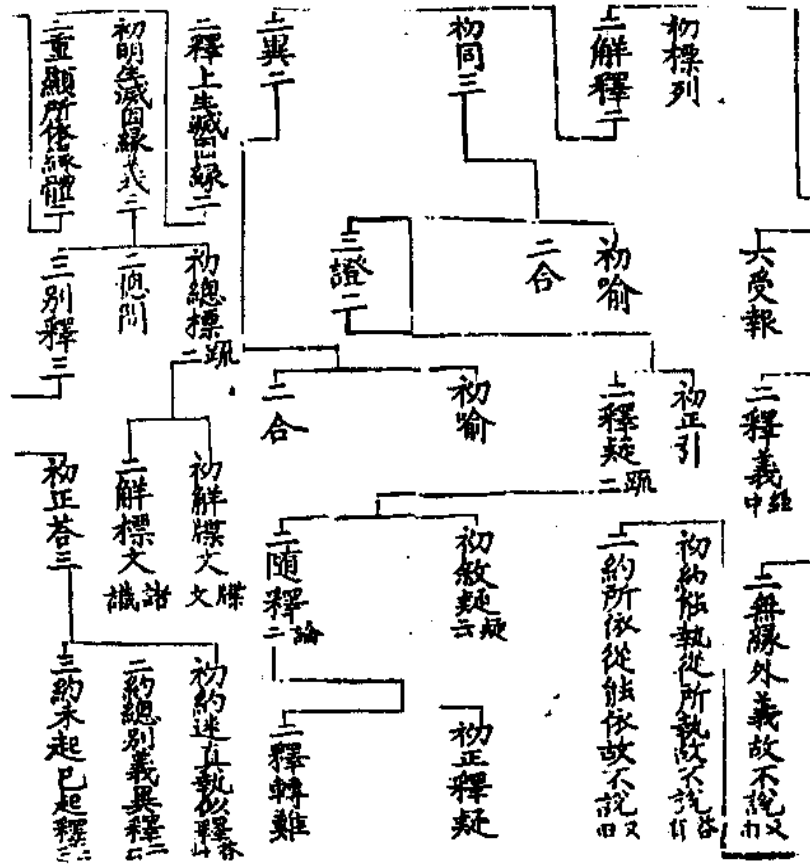 初標列
二解釋二
初同三
二異二
二釋上生滅因緣二
初明生滅因緣義三
二重顯所依緣體二
六受報
初喻
二合
三證二
初總標二疏
二總問
三別釋三
二釋義中經
初正引
二釋疑二疏
初喻
二合
初解牒文牒文
二解標文諸識
初正荅三
二無緣外義故不說又
初約能執從所執故不說荅
二約所依從能依故不說又
初敘疑疑云
二隨釋二論
初正釋疑
二釋轉難
初約迷真執似釋荅
二約總別義異釋二
三約未起已起釋